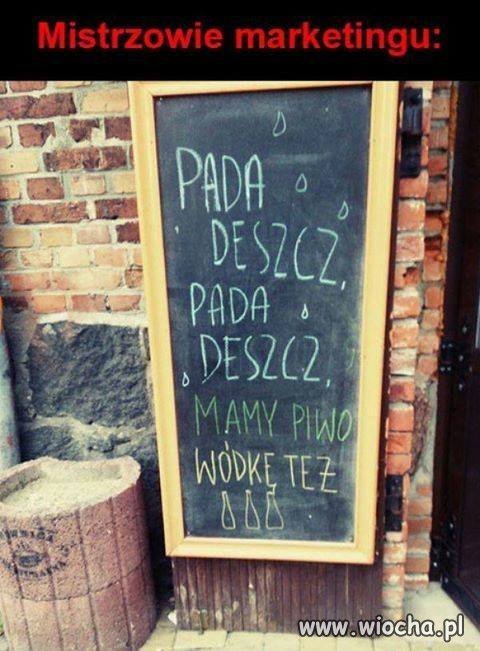 Mistrzowie marketingu:
PADA
DESZCZ,
PADA
DESZCZ,
MAMY PIWO
WÓDKĘ TEŻ
www.wiocha.pl